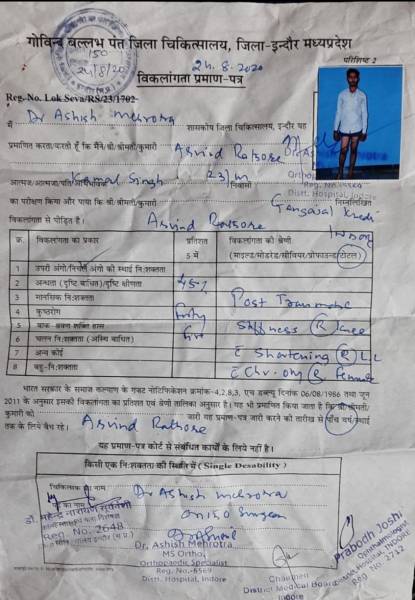 गोविन्द बल्लभ पंत जिला चिकित्सालय, जिला-इन्दौर मध्यप्रदेश
24.8.2020
परिशिष्ट 2
विकलांगता प्रमाण-पत्र
150
24/8/20
Reg-No. Lok Seva/RS/23/1702
मैं Dr Ashish Mehrotra शासकीय जिला चिकित्सालय, इन्दौर
प्रमाणित करता/करती हूँ कि मैंने/श्री/श्रीमती/कुमारी Arvind Rathore
Reg. No.-6569
Distt. Hospital, Indore
आत्मज/आत्मजा/पति/अभिभावक Kamal Singh 23/m निवासी
का परीक्षण किया और पाया कि श्री/श्रीमती/कुमारी निम्नलिखित
विकलांगता से पीड़ित है। Arvind Rathore Indore
क्र. विकलांगता का प्रकार प्रतिशत 5 में विकलांगता की श्रेणी (माइल्ड/मोडरेड/सीवियर/प्रोफाउन्ड/टोटल)
1 उपरी अंगो/निचले अंगो की स्थाई निःशक्तता
2 अन्धता (दृष्टि बाधित)/दृष्टि क्षीणता 45%
3 मानसिक निःशक्तता Post Traumatic
4 कुष्ठरोग Forty
5 वाक-श्रवण शक्ति ह्रास five Stiffness (R) knee
6 चलन निःशक्तता (अस्थि बाधित)
7 अन्य कोई c Shortening (R) L.L
8 बहु-निःशक्तता c Chr. om (R) Femur
भारत सरकार के समाज कल्याण के गजट नोटिफिकेशन क्रमांक-4,2,8,3, एच डब्ल्यू दिनांक 06/08/1986 तथा जून
2011 के अनुसार इसकी विकलांगता का प्रतिशत एवं श्रेणी तालिका अनुसार है। यह भी प्रमाणित किया जाता है कि श्री/श्रीमती/
कुमारी को Arvind Rathore जारी यह प्रमाण-पत्र जारी करने की तारीख से पाँच वर्ष/स्थाई
तक के लिए वैध रहे।
यह प्रमाण-पत्र कोर्ट से संबंधित कार्यो के लिए नहीं है।
किसी एक निःशक्तता की स्थिति में ( Single Desability )
चिकित्सक का नाम Dr Ashish Mehrotra
Reg. No. 2648
Dr. Ashish Mehrotra
MS Ortho,
Orthopaedic Specialist
Reg. No.-6569
Distt. Hospital, Indore
Chairmen
District Medical Board
Indore
Prabodh Joshi
Reg. No. 1712
INDORE